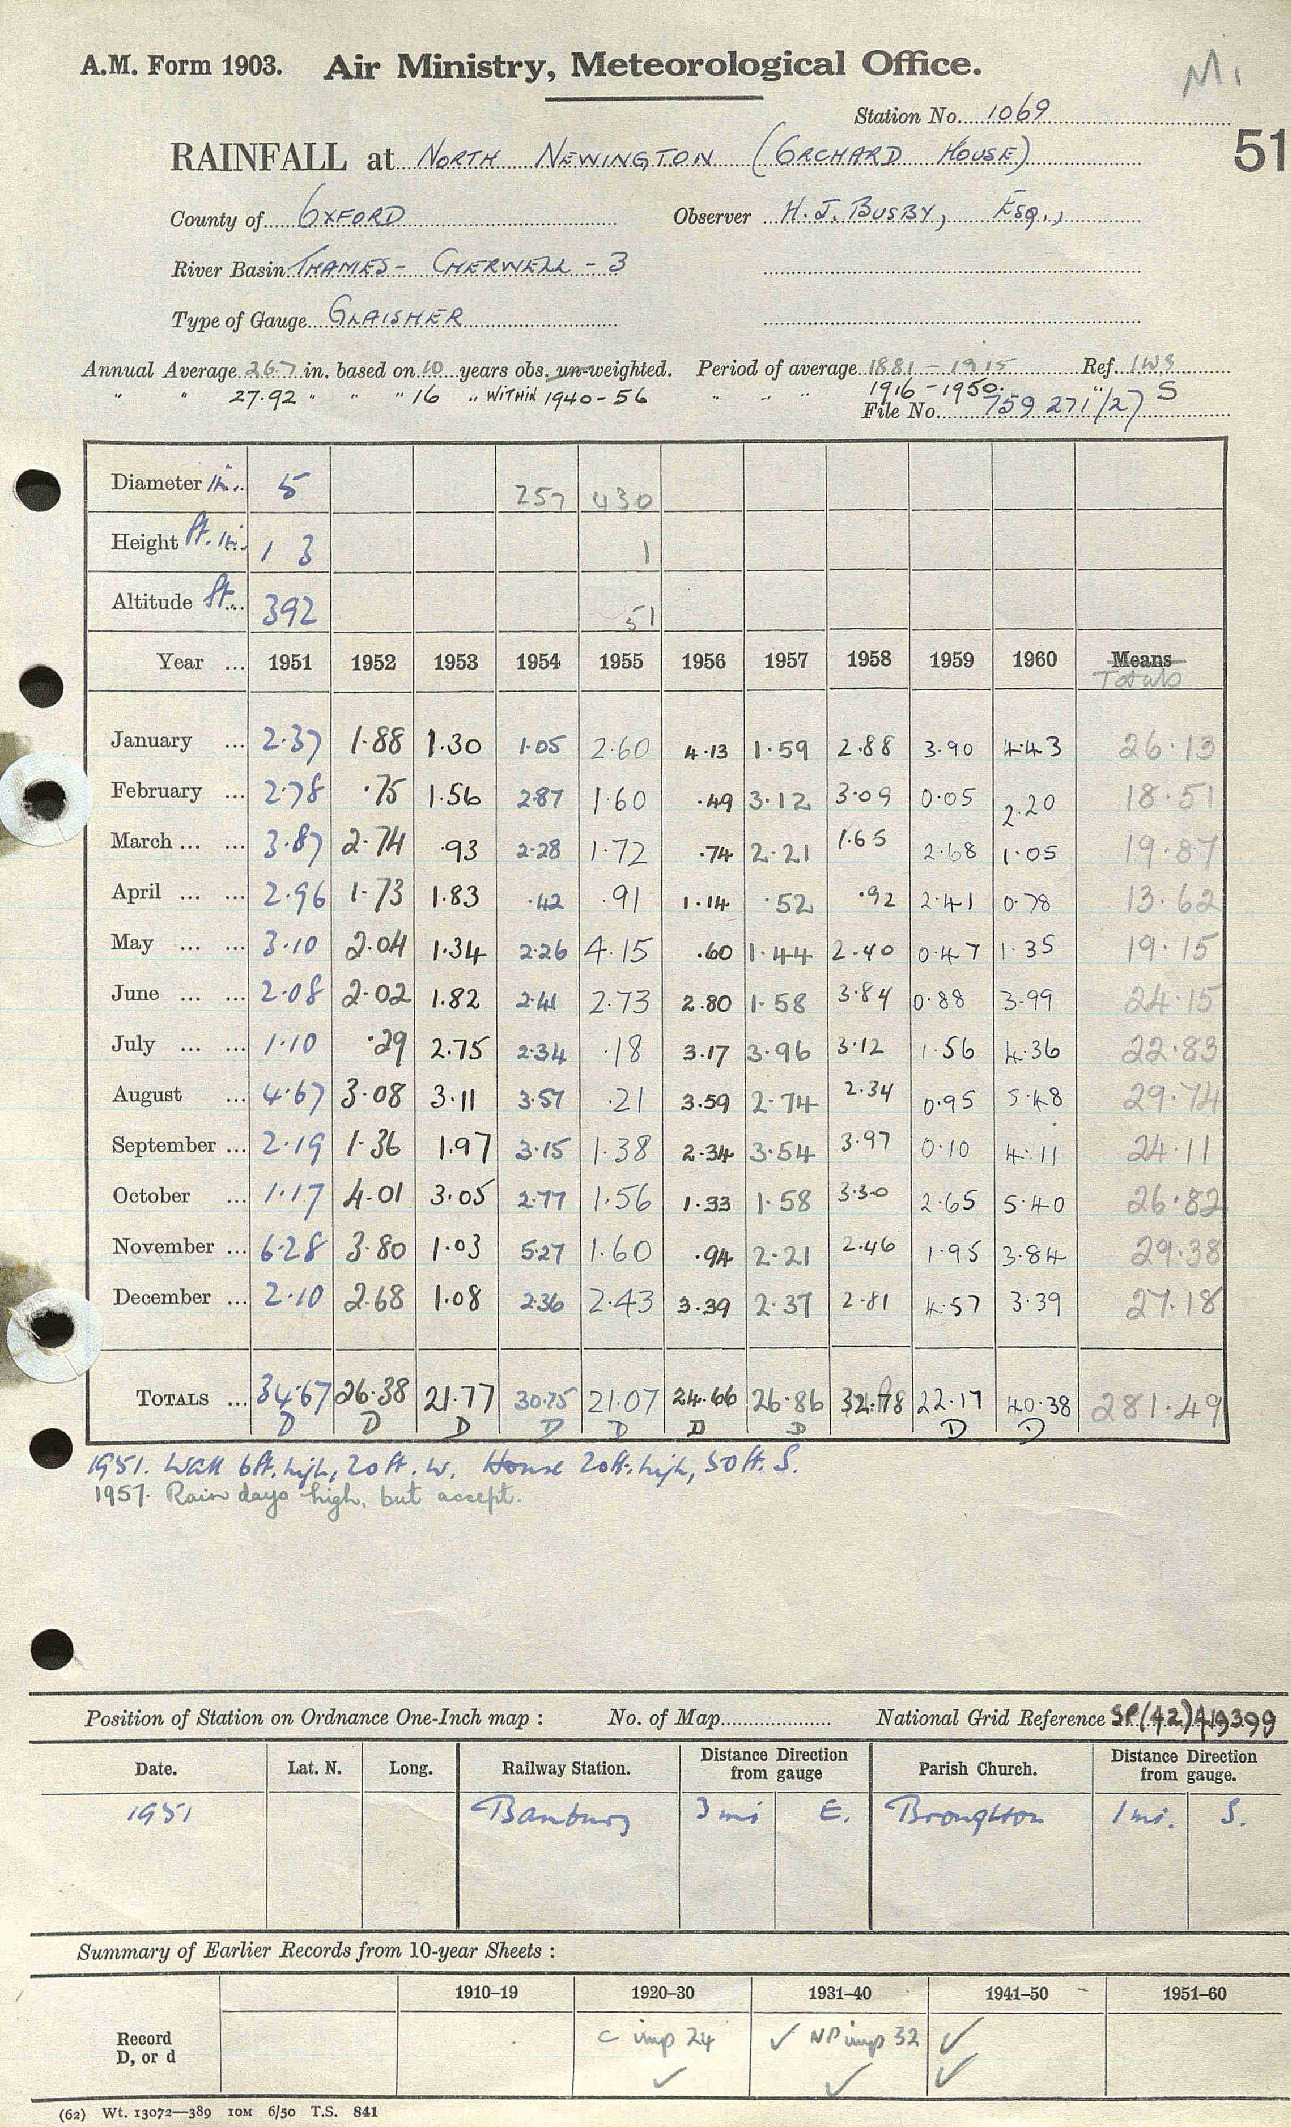 M1
A.M. Form 1903. Air Ministry, Meteorological Office.
Station No. 1069
51
RAINFALL at NORTH NEWINGTON (ORCHARD HOUSE)
County of OXFORD Observer H. J. BUSBY, ESQ.,
River Basin THAMES - CHERWELL - 3
Type of Gauge GLAISHER
Annual Average 26.7 in. based on 10 years obs. un-weighted. Period of average 1881 - 1915 Ref. IWS
" " 27.92 " " " 16 " WITHIN 1940-56 " " " 1916 - 1950. " S
File No. 759271/27
Diameter in. 5 257 430
Height ft. in. 1 3 1
Altitude ft. 392 51
Year ... 1951 1952 1953 1954 1955 1956 1957 1958 1959 1960 Means
Totals
January ... 2.37 1.88 1.30 1.05 2.60 4.13 1.59 2.88 3.90 4.43 26.13
February ... 2.78 .75 1.56 2.87 1.60 .49 3.12 3.09 0.05 2.20 18.51
March ... ... 3.87 2.74 .93 2.28 1.72 .74 2.21 1.65 2.68 1.05 19.87
April ... ... 2.96 1.73 1.83 .42 .91 1.14 .52 .92 2.41 0.78 13.62
May ... ... 3.10 2.04 1.34 2.26 4.15 .60 1.44 2.40 0.47 1.35 19.15
June ... ... 2.08 2.02 1.82 2.41 2.73 2.80 1.58 3.84 0.88 3.99 24.15
July ... ... 1.10 .29 2.75 2.34 .18 3.17 3.96 3.12 1.56 4.36 22.83
August ... 4.67 3.08 3.11 3.57 .21 3.59 2.74 2.34 0.95 5.48 29.74
September ... 2.19 1.36 1.97 3.15 1.38 2.34 3.54 3.97 0.10 4.11 24.11
October ... 1.17 4.01 3.05 2.77 1.56 1.33 1.58 3.30 2.65 5.40 26.82
November ... 6.28 3.80 1.03 5.27 1.60 .94 2.21 2.46 1.95 3.84 29.38
December ... 2.10 2.68 1.08 2.36 2.43 3.39 2.37 2.81 4.57 3.39 27.18
TOTALS ... 34.67 26.38 21.77 30.75 21.07 24.66 26.86 32.78 22.17 40.38 281.49
D D D D D D D D D
1951. Wall 6ft. high, 20ft. W. House 20ft. high, 50ft. S.
1957. Rain days high, but accept.
Position of Station on Ordnance One-Inch map : No. of Map National Grid Reference SP(42)419399
Date. Lat. N. Long. Railway Station. Distance Direction from gauge Parish Church. Distance Direction from gauge.
1951 Banbury 3 mi E. Broughton 1 mi. S.
Summary of Earlier Records from 10-year Sheets :
1910–19 1920–30 1931–40 1941–50 1951–60
Record D, or d C imp 24 ✓ NP imp 32 ✓
✓ ✓ ✓
(62) Wt. 13072—389 10M 6/50 T.S. 841